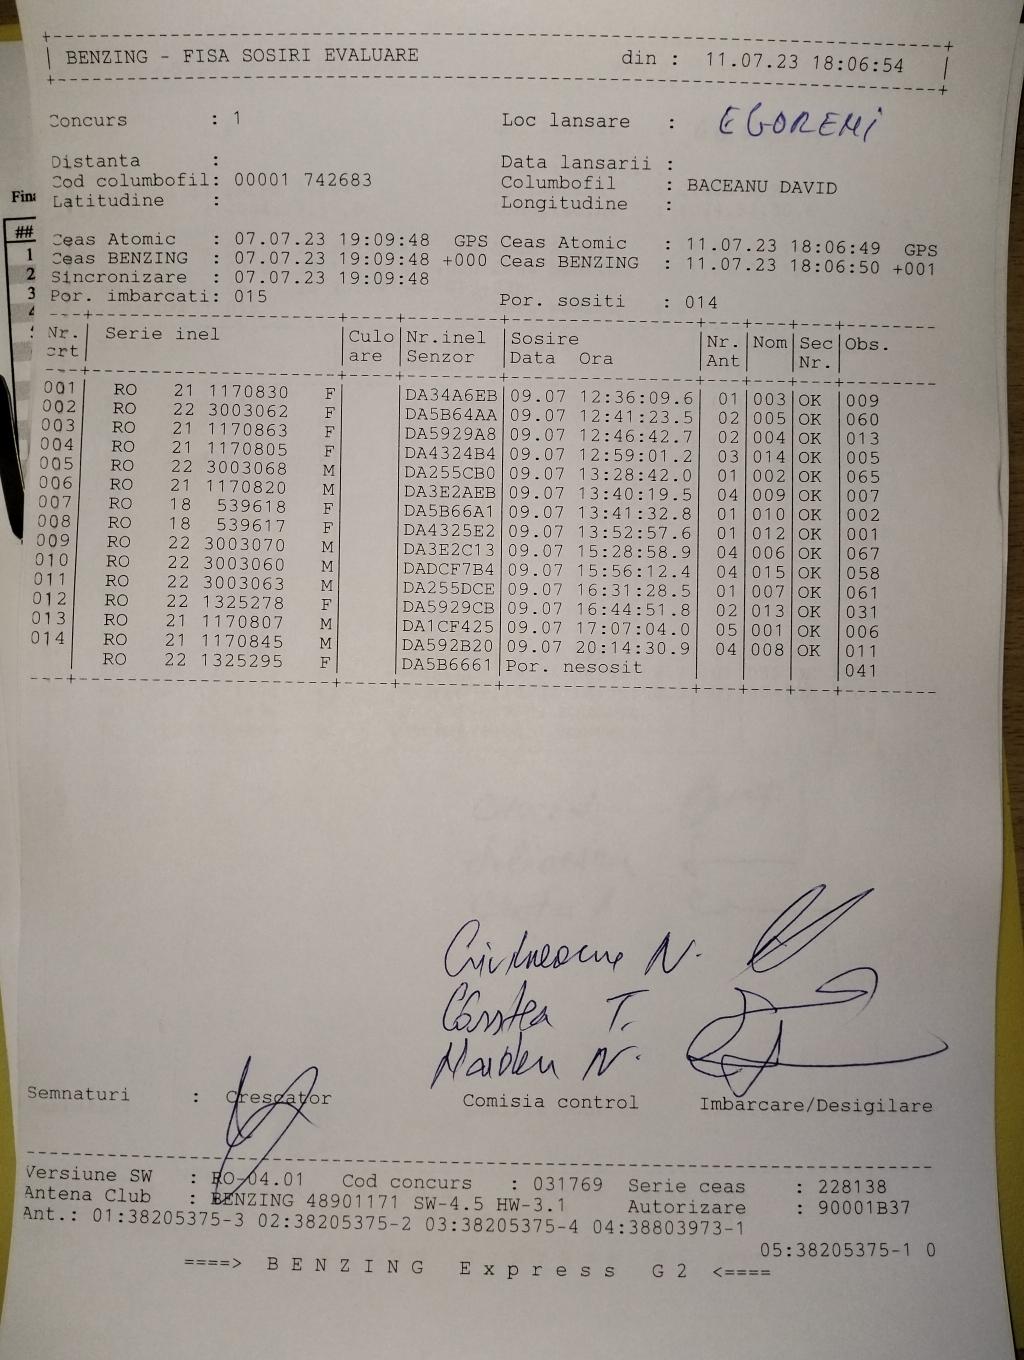 BENZING - FISA SOSIRI EVALUARE din : 11.07.23 18:06:54
Concurs : 1 Loc lansare : EGOREMI
Distanta : Data lansarii :
Cod columbofil: 00001 742683 Columbofil : BACEANU DAVID
Latitudine : Longitudine :
Ceas Atomic : 07.07.23 19:09:48 GPS Ceas Atomic : 11.07.23 18:06:49 GPS
Ceas BENZING : 07.07.23 19:09:48 +000 Ceas BENZING : 11.07.23 18:06:50 +001
Sincronizare : 07.07.23 19:09:48
Por. imbarcati: 015 Por. sositi : 014
Nr. Serie inel Culo Nr.inel Sosire Nr. Nom Sec Obs.
crt are Senzor Data Ora Ant Nr.
001 RO 21 1170830 F DA34A6EB 09.07 12:36:09.6 01 003 OK 009
002 RO 22 3003062 F DA5B64AA 09.07 12:41:23.5 02 005 OK 060
003 RO 21 1170863 F DA5929A8 09.07 12:46:42.7 02 004 OK 013
004 RO 21 1170805 F DA4324B4 09.07 12:59:01.2 03 014 OK 005
005 RO 22 3003068 M DA255CB0 09.07 13:28:42.0 01 002 OK 065
006 RO 21 1170820 M DA3E2AEB 09.07 13:40:19.5 04 009 OK 007
007 RO 18 539618 F DA5B66A1 09.07 13:41:32.8 01 010 OK 002
008 RO 18 539617 F DA4325E2 09.07 13:52:57.6 01 012 OK 001
009 RO 22 3003070 M DA3E2C13 09.07 15:28:58.9 04 006 OK 067
010 RO 22 3003060 M DADCF7B4 09.07 15:56:12.4 04 015 OK 058
011 RO 22 3003063 M DA255DCE 09.07 16:31:28.5 01 007 OK 061
012 RO 22 1325278 F DA5929CB 09.07 16:44:51.8 02 013 OK 031
013 RO 21 1170807 M DA1CF425 09.07 17:07:04.0 05 001 OK 006
014 RO 21 1170845 M DA592B20 09.07 20:14:30.9 04 008 OK 011
RO 22 1325295 F DA5B6661 Por. nesosit 041
N.
T.
N.
Semnaturi : Crescator Comisia control Imbarcare/Desigilare
Versiune SW : RO-04.01 Cod concurs : 031769 Serie ceas : 228138
Antena Club : BENZING 48901171 SW-4.5 HW-3.1 Autorizare : 90001B37
Ant.: 01:38205375-3 02:38205375-2 03:38205375-4 04:38803973-1
05:38205375-1 0
====> BENZING Express G2 <====